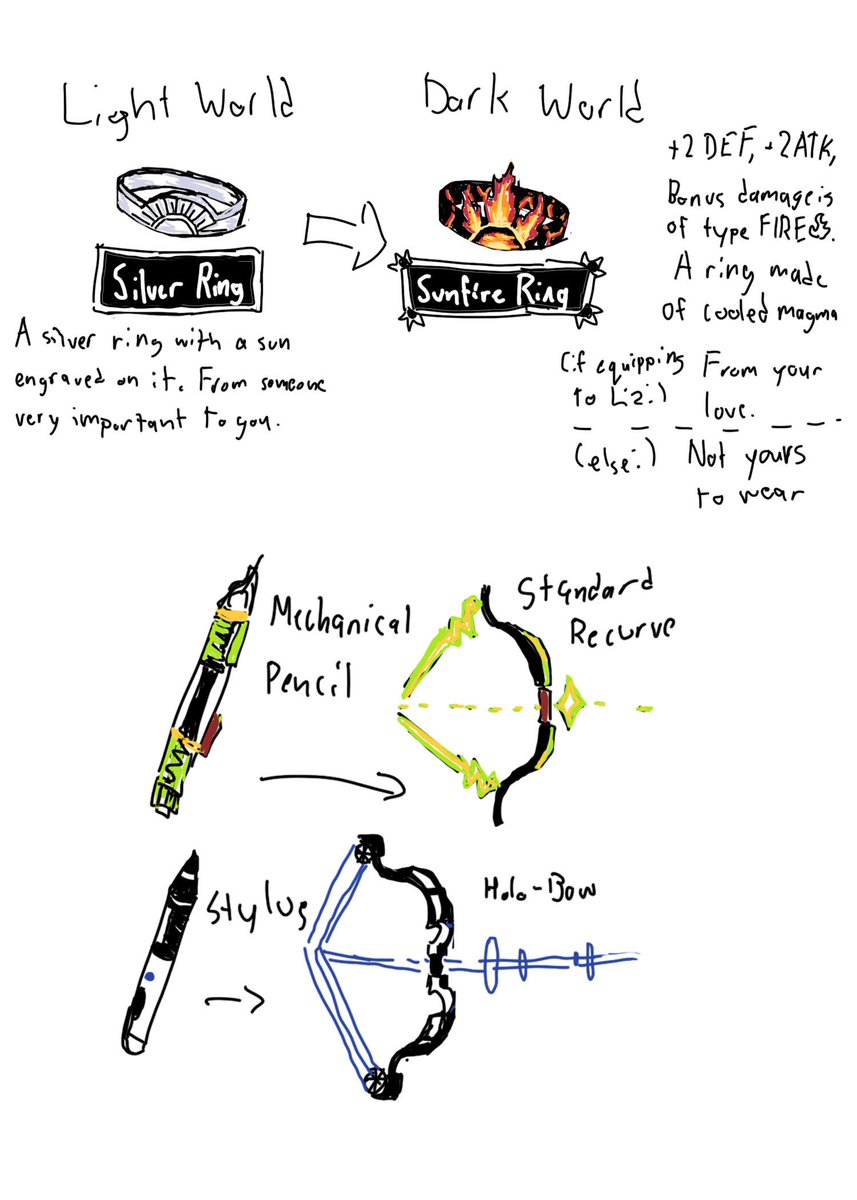 Light World
Dark World
Silver Ring
Sunfire Ring
A silver ring with a sun
engraved on it. From someone
very important to you.
+2 DEF, +2 ATK,
Bonus damage is
of type FIRE.
A ring made
of cooled magma
(if equipping
to Liz:)
From your
love.
(else:)
Not yours
to wear
Mechanical
Pencil
Standard
Recurve
Stylus
Holo-Bow